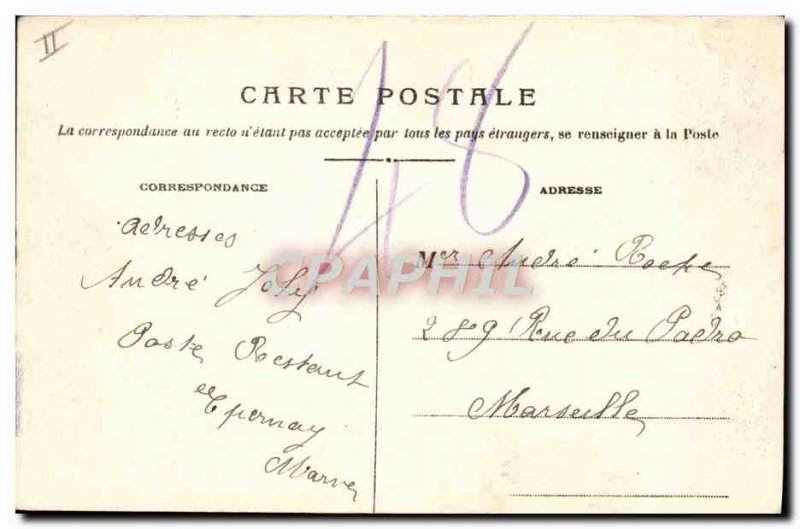 II
48
CARTE POSTALE
La correspondance au recto n'étant pas acceptée par tous les pays étrangers, se renseigner à la Poste
CORRESPONDANCE
adresses
André Joly
Poste Restant
Epernay
Marne
ADRESSE
Mer André Roche
289 Rue du Padro
Marseille
CPAPHIL